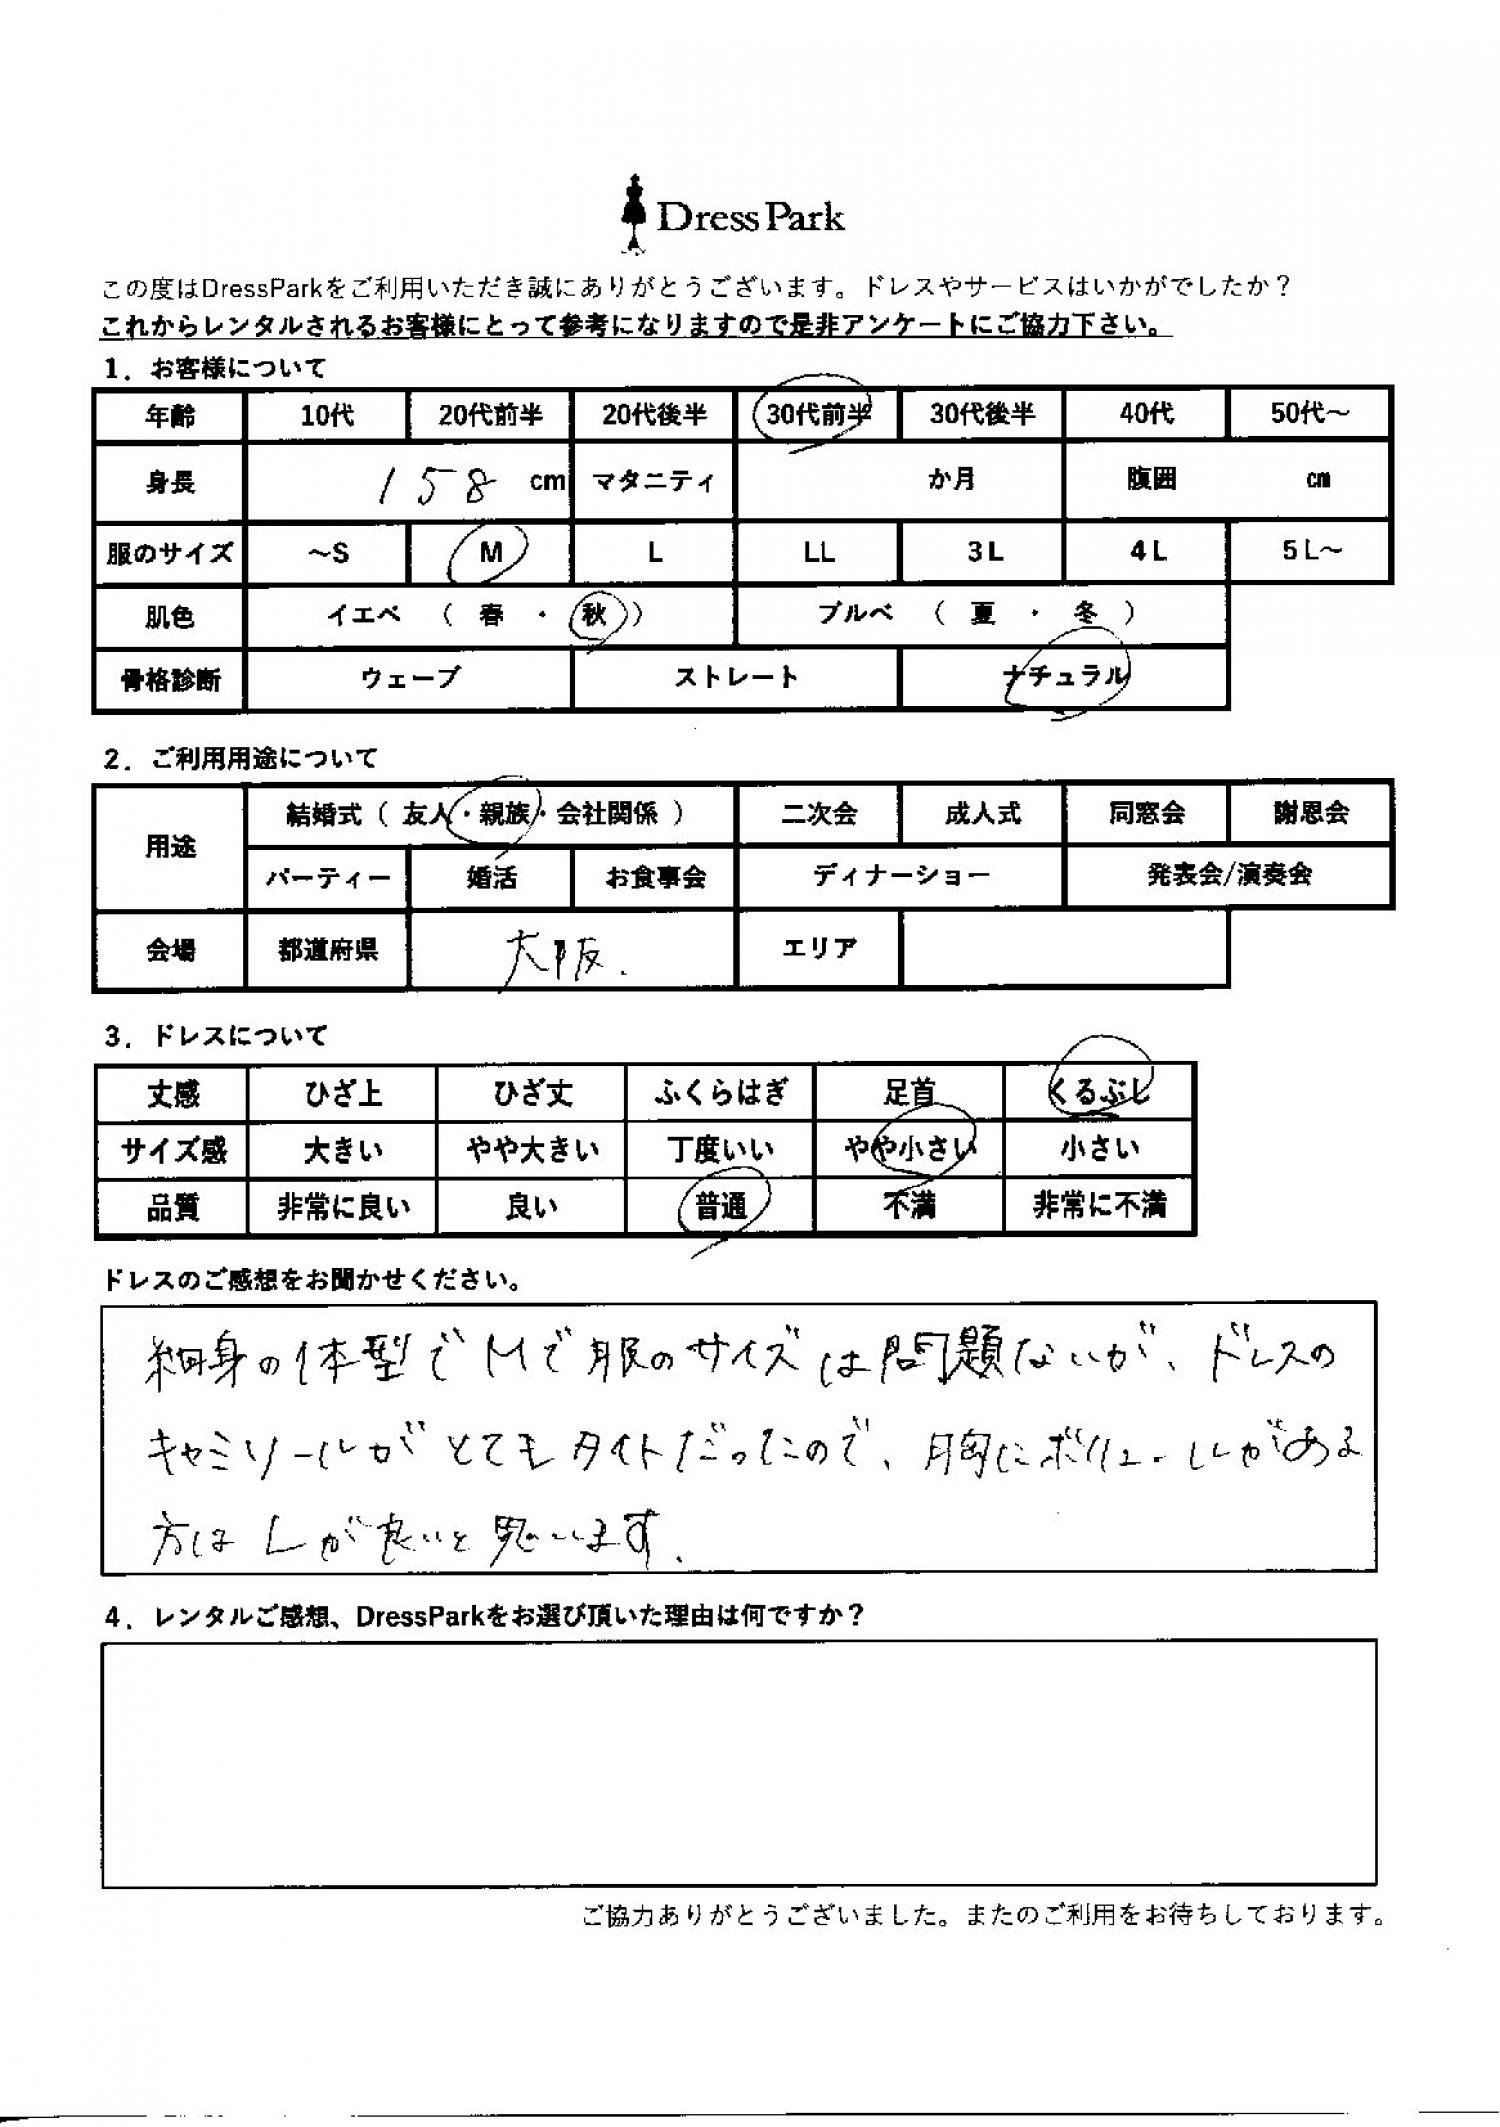 Dress Park
この度はDressParkをご利用いただき誠にありがとうございます。ドレスやサービスはいかがでしたか？
これからレンタルされるお客様にとって参考になりますので是非アンケートにご協力下さい。
1．お客様について
年齢 10代 20代前半 20代後半 30代前半 30代後半 40代 50代～
身長 158 cm マタニティ か月 腹囲 cm
服のサイズ ～S M L LL 3L 4L 5L～
肌色 イエベ （ 春 ・ 秋 ） ブルベ （ 夏 ・ 冬 ）
骨格診断 ウェーブ ストレート ナチュラル
2．ご利用用途について
用途 結婚式（ 友人・親族・会社関係 ） 二次会 成人式 同窓会 謝恩会
パーティー 婚活 お食事会 ディナーショー 発表会/演奏会
会場 都道府県 大阪. エリア
3．ドレスについて
丈感 ひざ上 ひざ丈 ふくらはぎ 足首 くるぶし
サイズ感 大きい やや大きい 丁度いい やや小さい 小さい
品質 非常に良い 良い 普通 不満 非常に不満
ドレスのご感想をお聞かせください。
細身の体型でMで服のサイズは問題ないが、ドレスの
キャミソールがとてもタイトだったので、胸にボリュームがある
方はLが良いと思います.
4．レンタルご感想、DressParkをお選び頂いた理由は何ですか？
ご協力ありがとうございました。またのご利用をお待ちしております。